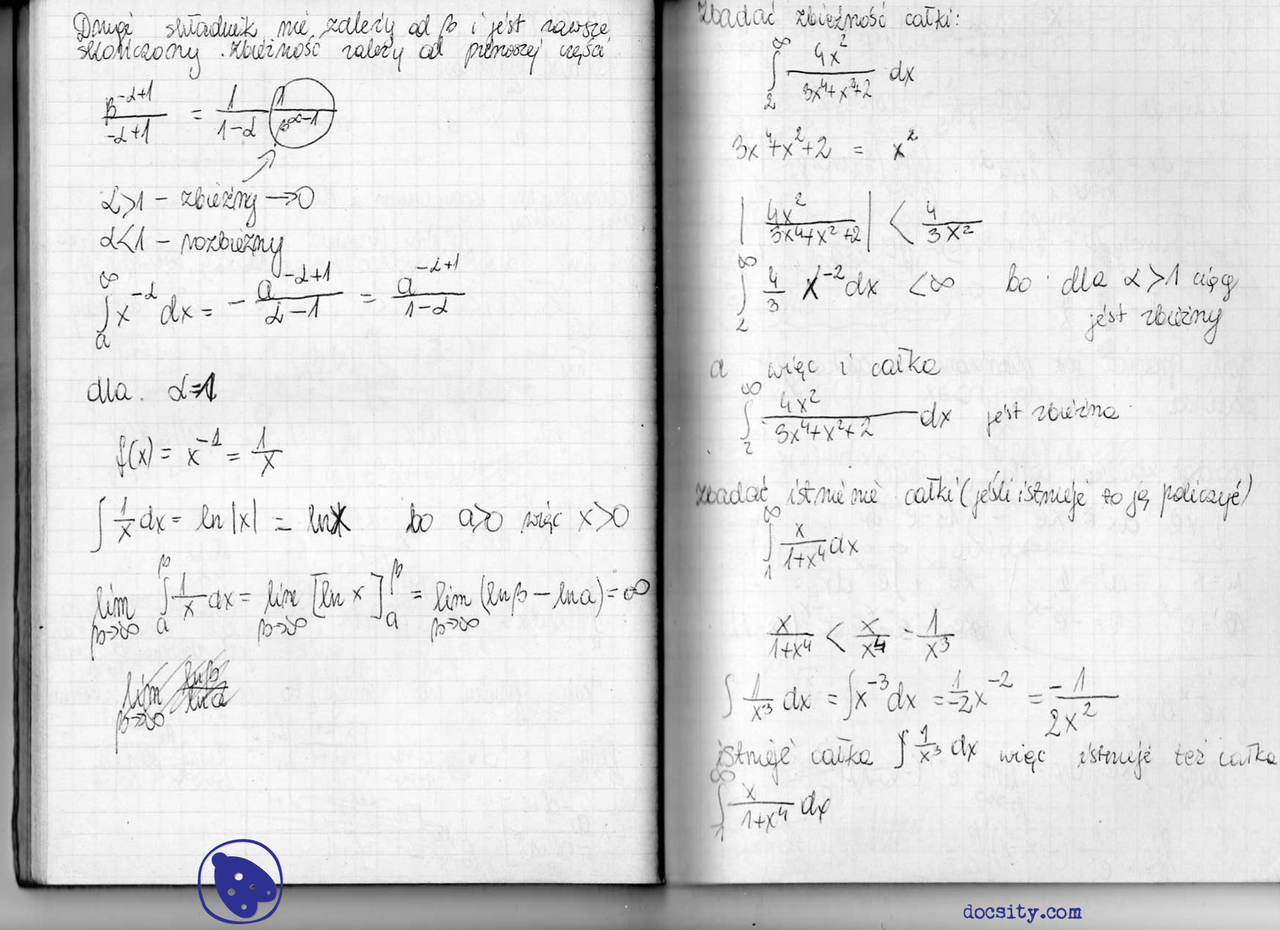 Drugi składnik nie zależy od β i jest zawsze
skończony. Zbieżność zależy od pierwszej części
β^(-α+1) / (-α+1) = 1/(1-α) · 1/β^(α-1)
α>1 – zbieżny → 0
α<1 – rozbieżny
∫_a^∞ x^(-α) dx = - a^(-α+1)/(α-1) = a^(-α+1)/(1-α)
dla α=1
f(x) = x^(-1) = 1/x
∫ 1/x dx = ln|x| = ln x bo a>0 więc x>0
lim_(β→∞) ∫_a^β 1/x dx = lim_(β→∞) [ln x]_a^β = lim_(β→∞) (lnβ – ln a) = ∞
lim_(β→∞) lnβ/ln a
Zbadać zbieżność całki:
∫_2^∞ 4x²/(3x⁴+x²+2) dx
3x⁴+x²+2 = x²
| 4x²/(3x⁴+x²+2) | < 4/(3x²)
∫_2^∞ 4/3 x^(-2) dx < ∞ bo dla α>1 ciąg
jest zbieżny
a więc i całka
∫_2^∞ 4x²/(3x⁴+x²+2) dx jest zbieżna
Zbadać istnienie całki (jeśli istnieje to ją policzyć)
∫_1^∞ x/(1+x⁴) dx
x/(1+x⁴) < x/x⁴ = 1/x³
∫ 1/x³ dx = ∫ x^(-3) dx = 1/(-2) x^(-2) = -1/(2x²)
istnieje całka ∫ 1/x³ dx więc istnieje też całka
∫_1^∞ x/(1+x⁴) dx
docsity.com